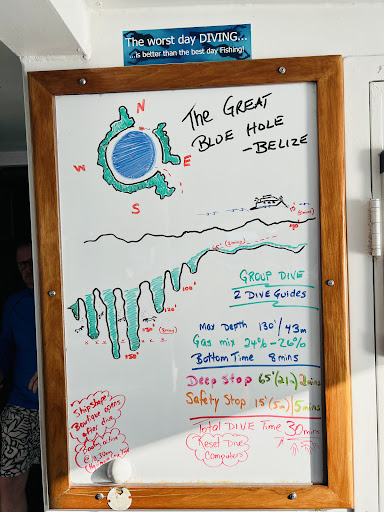 The worst day DIVING...
...is better than the best day Fishing!
The GREAT
BLUE HOLE
- BELIZE
N
W
E
S
GROUP DIVE
2 DIVE GUIDES
100'
120'
130'
150'
Max Depth 130'/43m
Gas mix 24% - 26%
Bottom Time 8 mins
Deep Stop 65' (21m) 2mins
Safety Stop 15' (5m) 5mins
Total DIVE Time 30mins
Reset Dive
Computers
Shipshape
Boutique opens
after dive